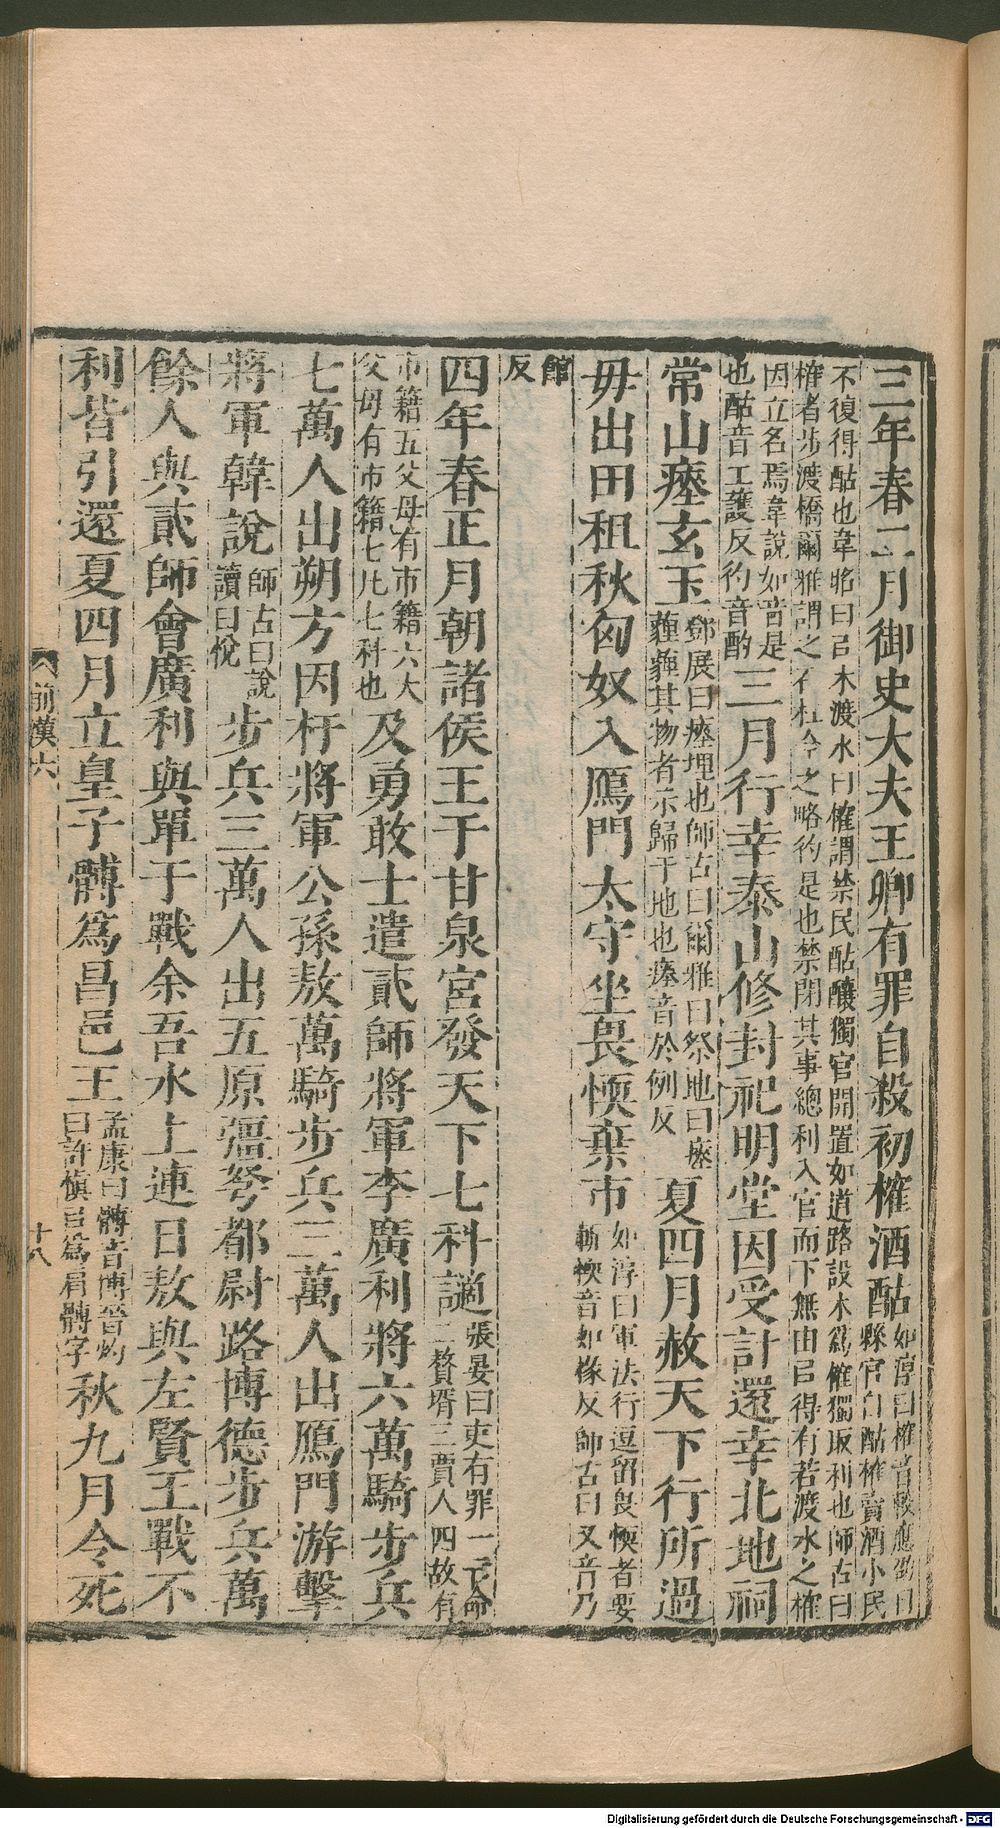 三年春二月御史大夫王卿有罪自殺初榷酒酤如淳曰榷音較應劭曰縣官自酤榷賣酒小民
不復得酤也韋昭曰㠯木渡水曰榷謂禁民酤釀獨官開置如道路設木爲榷獨取利也師古曰榷者步渡橋爾雅謂之石杠今之略彴是也禁閉其事總利入官而下無由㠯得有若渡水之榷
因立名焉韋說如音是也酤音工護反彴音酌三月行幸泰山修封祀明堂因受計還幸北地祠
常山瘞玄玉鄧展曰瘞埋也師古曰爾雅曰祭地曰瘞薶薶其物者示歸于地也瘞音於例反夏四月赦天下行所過
毋出田租秋匈奴入鴈門太守坐畏愞棄市如淳曰軍法行逗留畏愞者要斬愞音如掾反師古曰又音乃
館反
四年春正月朝諸侯王于甘泉宮發天下七科讁張晏曰吏有罪一亡命二贅壻三賈人四故有
市籍五父母有市籍六大父母有市籍七凡七科也及勇敢士遣貳師將軍李廣利將六萬騎步兵
七萬人出朔方因杅將軍公孫敖萬騎步兵三萬人出鴈門游擊
將軍韓說師古曰說讀曰悅步兵三萬人出五原彊弩都尉路博德步兵萬
餘人與貳師會廣利與單于戰余吾水上連日敖與左賢王戰不
利皆引還夏四月立皇子髆爲昌邑王孟康曰髆音博晉灼曰許愼㠯爲肩髆字秋九月令死
前漢六
十八
Digitalisierung gefördert durch die Deutsche Forschungsgemeinschaft - DFG